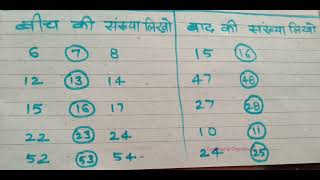 बीच की संख्या लिखो बाद की संख्या लिखो
6 7 8 15 16
12 13 14 47 48
15 16 17 27 28
22 23 24 10 11
52 53 54 24 25